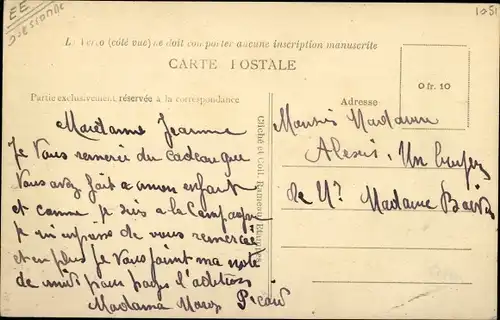 EE
1051
Le Verso (côté vue) ne doit comporter aucune inscription manuscrite
CARTE POSTALE
0 fr. 10
Partie exclusivement réservée à la correspondance
Adresse
Madame Jeanne
Je Vous remercie du Cadeau que
Vous avez fait a mon enfant
et comme je suis a la Campagne
je m'enpresse de vous remercié
et en plus je Vous joint ma note
de midi pour payé l'adition
Madame Picard
Cliché et Coll. Rameau, Etampes
Monsieur Madame
Alexis, Un
de Madame